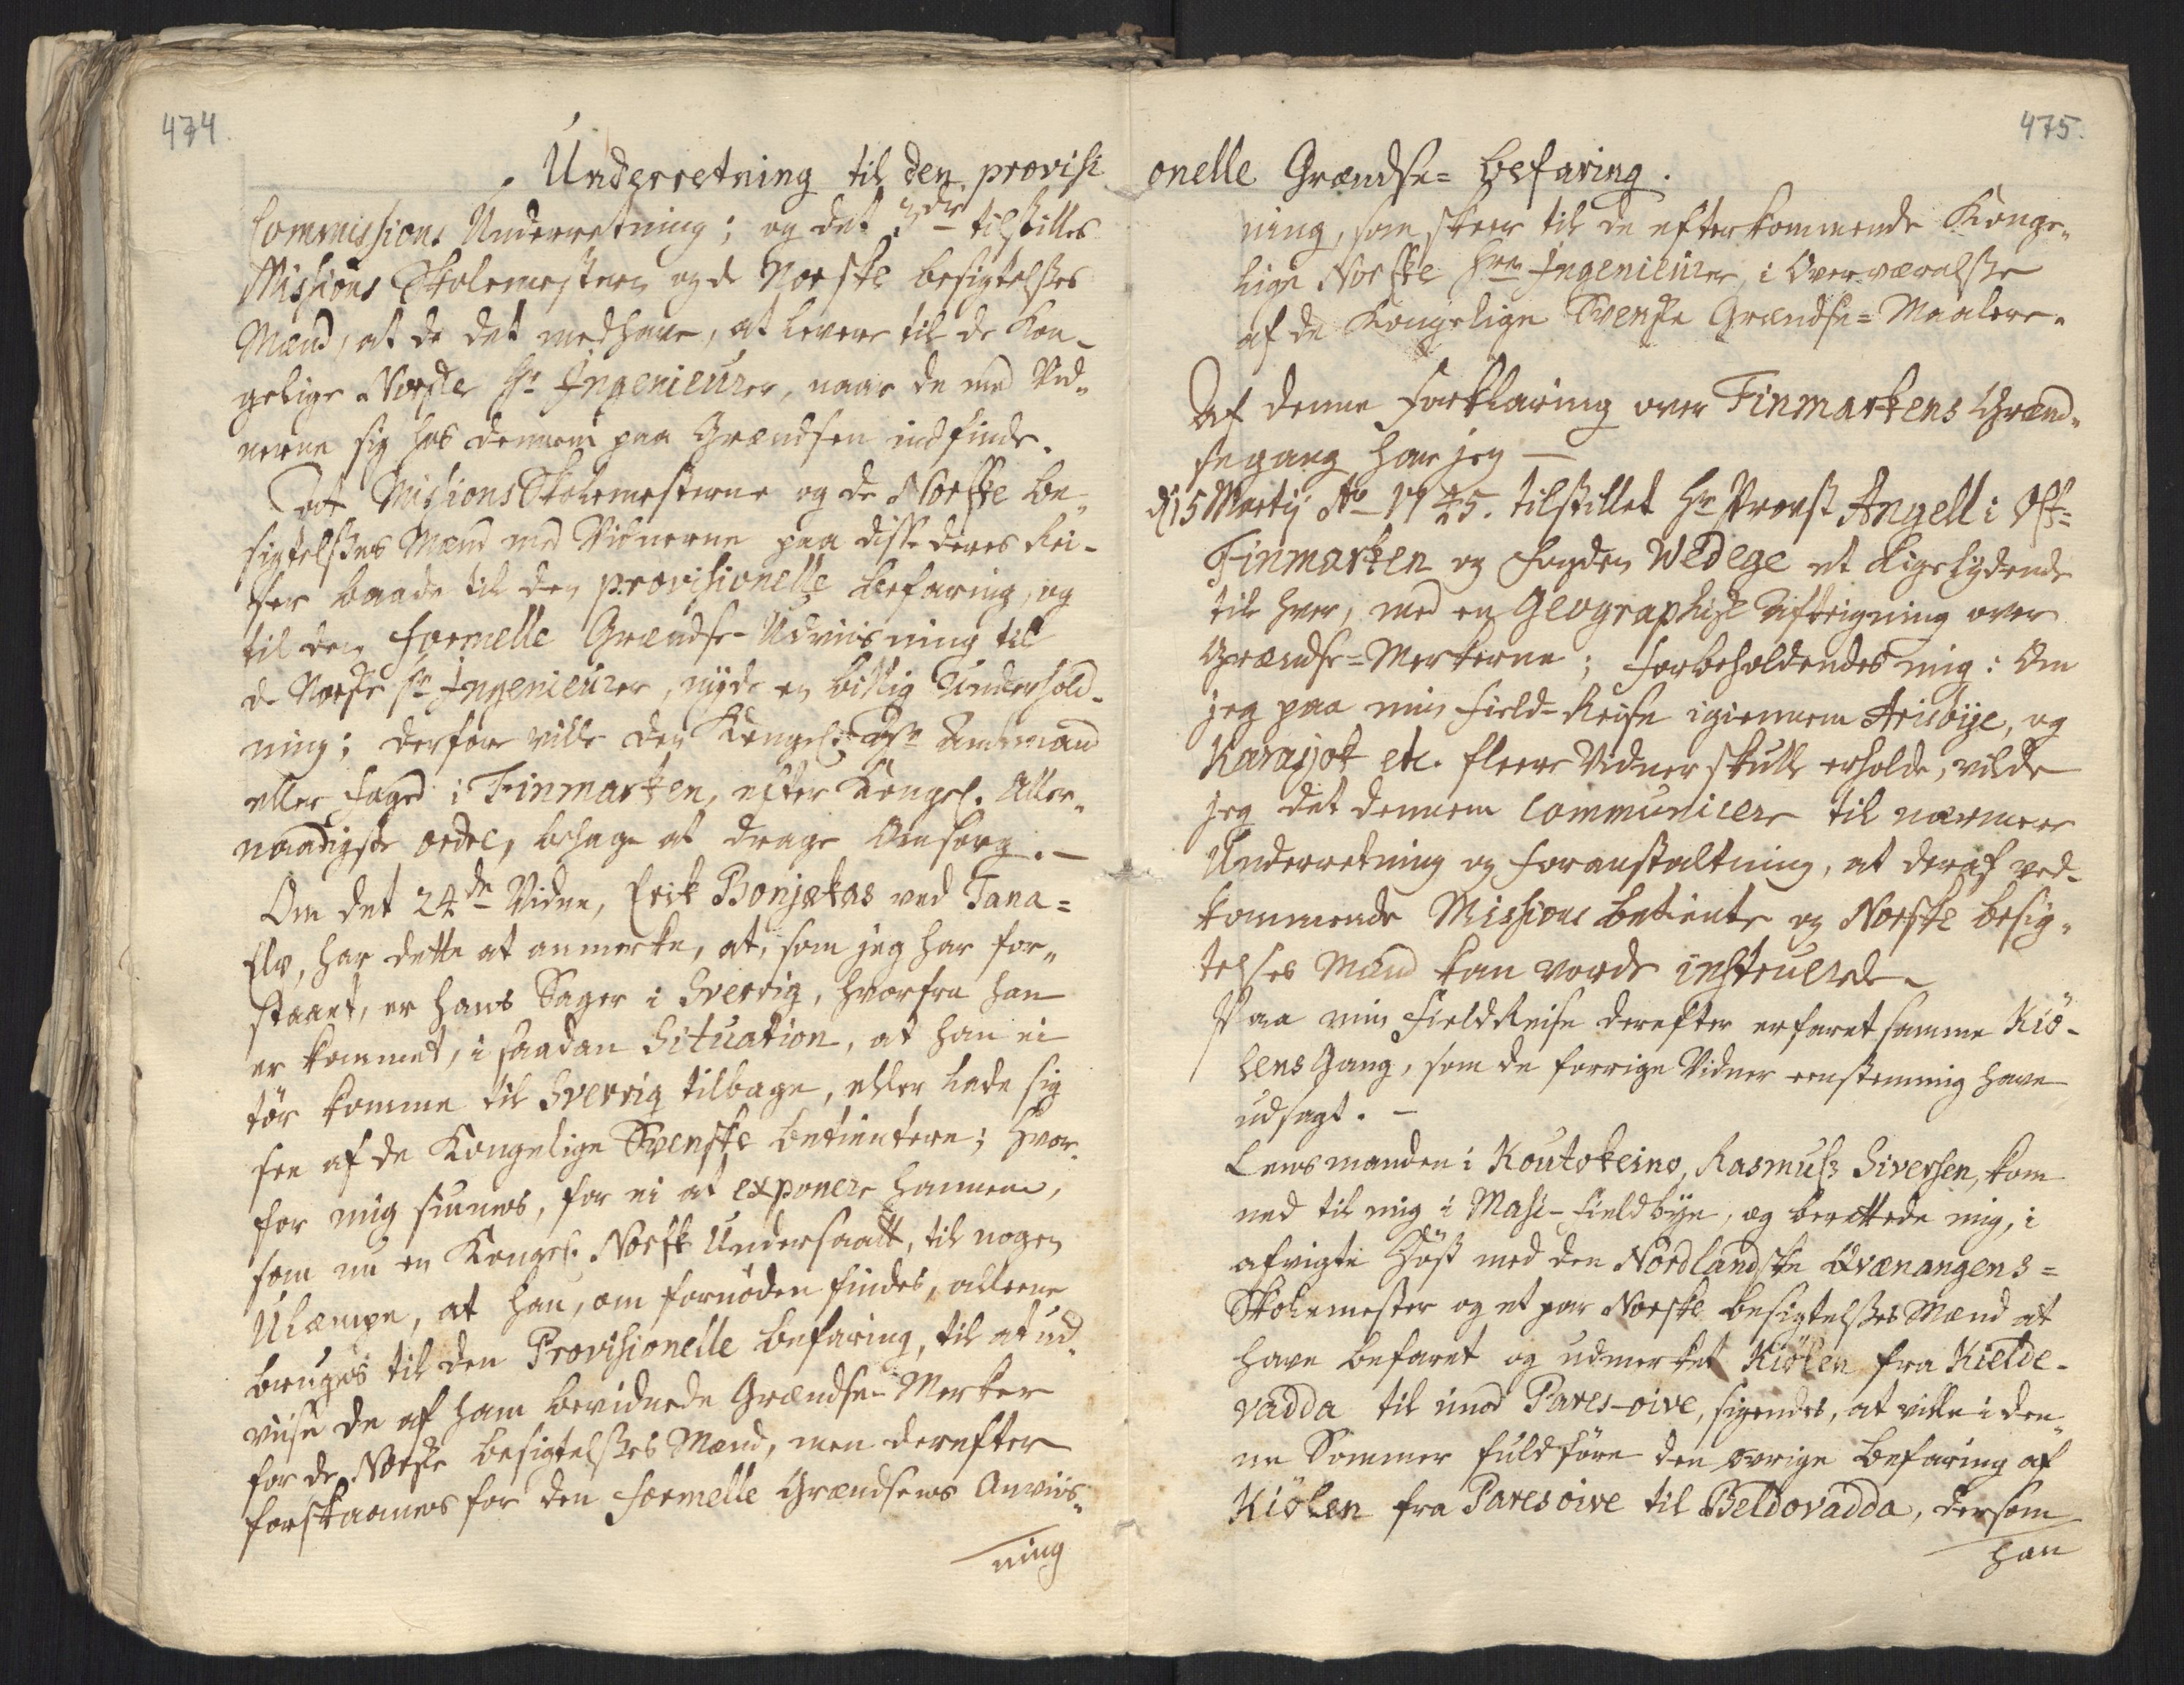 474.
Underretning til den provisi
Commissions Underretning; og det 3de tilstilles
Missions Skolemesteren og de Norske besigtelses
Mænd, at de det medhave, at levere til de Kon-
gelige Norske Hr. Ingenieurer, naar de med Vid-
nerne sig hos dennem paa Grændsen indfinde.
At Missions Skolemesterne og de Norske be-
sigtelses Mænd med Vidnerne paa disse deres Rei-
ser baade til den provisionelle befaring, og
til den formelle Grændse-Udviisning till
de Norske Hr. Ingenieurer, nyde en billig Underhold-
ning; derfore ville den Kongel: Hr. Amtmand
eller Foged i Finmarken, efter Kongel. Aller-
naadigste ordre, behage at drage Omsorg. –
Om det 24de Vidne, Erik Bonjakas ved Tana=
Elv, har dette at anmerke, at, som jeg har for-
staaet, er hans Sager i Sverrig, hvorfra han
er kommet, i saadan Situation, at han ei
tör komme til Sverrig tilbage, eller lade sig
see af de Kongelige Svenske betientere; hvor-
for mig siunes, for ei at exponere hannem,
som nu en Kongel. Norsk Undersaatt, til nogen
Ulæmpe, at han, om fornöden findes, alleene
bruges til den Provisionelle befaring, til at ud-
viise de af ham bevidnede Grændse-Merker
for de Norske besigtelses Mænd, men derefter
forskaanes for den formelle Grændsens Anviis-
ning
475.
onelle Grændse= befaring.
ning, som skeer til de efterkommende Konge-
lige Norske Hrr Ingenieurer, i Overværelse
af de Kongelige Svenske Grændse=Maalere.
Af denne Forklaring over Finmarkens Grænd-
segang har jeg –
d. 15 Martij Ao 1745. tilstillet Hr. Provst Angell i Ost=
Finmarken og Fogden Wedege et ligelydende
til hver, med en Geographisk Afteigning over
Grændse=Merkerne; forbeholdendes mig: Om
jeg paa min Field-Reise igiennem Arisbye, og
Karasjok etc. fleere Vidner skulle erholde, vilde
jeg det dennem communicere til nærmere
Underretning og foranstaltning, at deraf ved-
kommende Missions betiente og Norske besig-
telses Mænd kan vorde instruerede.
Paa min Field Reise derefter erfaret samme Kiö-
lens Gang, som de forrige Vidner eenstemmig have
udsagt. –
Lensmanden i Koutokeino, Rasmus Siversen, kom
ned til mig i Masi-Fieldbye, og berettede mig, i
afvigte Höst med den Nordlandske Qvænangens=
Skolemester og et par Norske besigtelses Mænd at
have befaret og udmerket Kiölen fra Kielde-
vadda til imod Pares-oive, sigendes, at ville i den-
ne Sommer fuldföre den övrige befaring af
Kiölen fra Paresoive til Beldovadda, dersom
han